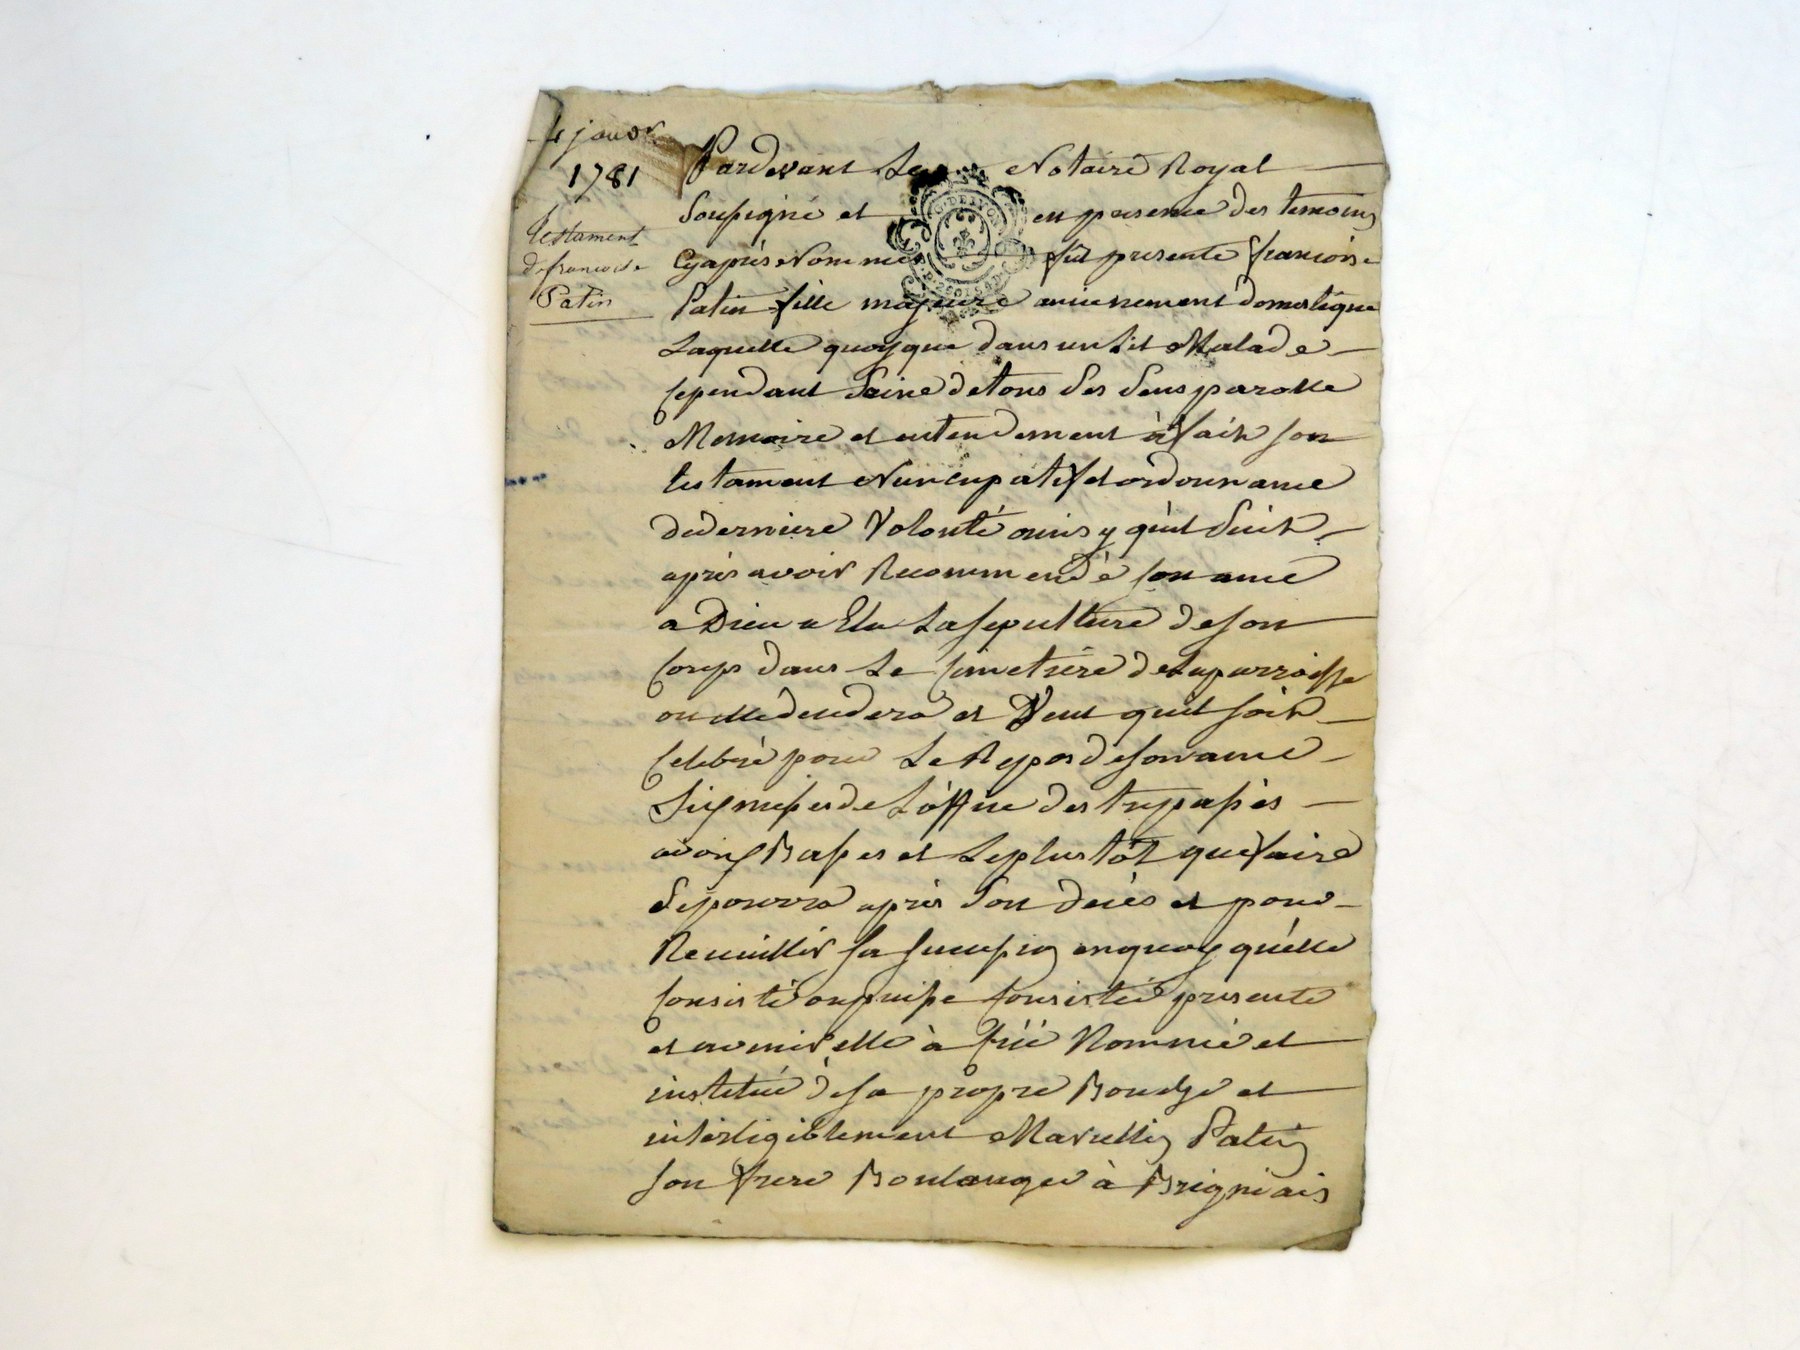 4 janvr
1781
Testament
de francoise
Patin
Pardevant Le Notaire Royal
Soussigné et en presence des temoins
Cyaprès Nommés fut presente francoise
Patin fille majeure anciennement domestique
Laquelle quoyque dans un Lit Malade
Cependant Saine de tous Ses Sens parolle
Memoire et entendement à fait son
testament Nuncupatif et ordonnance
de derniere Volonté ainsy qu'il Suit
après avoir Recommendé son ame
a Dieu a Elu La sepulture de son
Corps dans Le Cimetière de La parroisse
ou elle decedera et Veut quil soit
Celebré pour Le Repos de son ame
Six messes de L'office des trepassés
a voix Basses et Le plus tôt que faire
Se pourra après Son decès et pour
Recueillir sa succession en quoy qu'elle
Consiste ou puisse Consister presente
et avenir elle à Créé Nommé et
institué de sa propre Bouche et
intéligiblement Marcellin Patin
son frere Boulanger à Brigniais